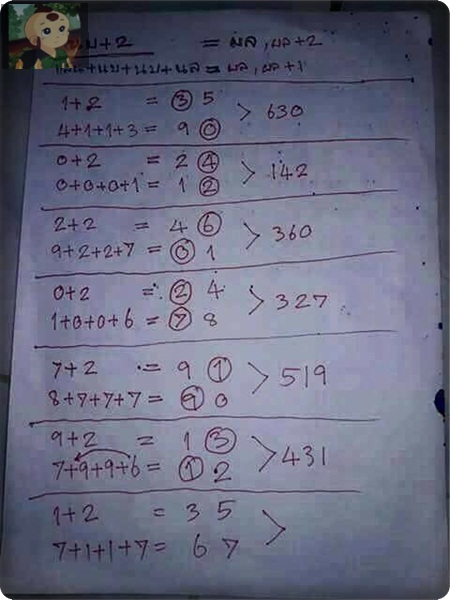 นบ+2 = ผล, ผล+2
แลน+นบ+นบ+นล = ผล, ผล+1
1+2 = 3 5
> 630
4+1+1+3 = 9 0
0+2 = 2 4
> 142
0+0+0+1 = 1 2
2+2 = 4 6
> 360
9+2+2+7 = 0 1
0+2 = 2 4
> 327
1+0+0+6 = 7 8
7+2 = 9 1
> 519
8+7+7+7 = 9 0
9+2 = 1 3
> 431
7+9+9+6 = 1 2
1+2 = 3 5
>
7+1+1+7 = 6 7